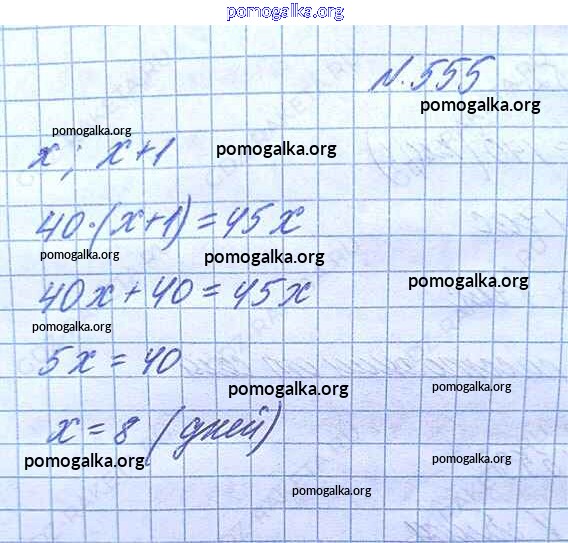 pomogalka.org
N.555
pomogalka.org
pomogalka.org
x; x+1
pomogalka.org
40·(x+1)=45x
pomogalka.org
pomogalka.org
40x+40=45x
pomogalka.org
pomogalka.org
5x=40
pomogalka.org
pomogalka.org
x=8 (дней)
pomogalka.org
pomogalka.org
pomogalka.org